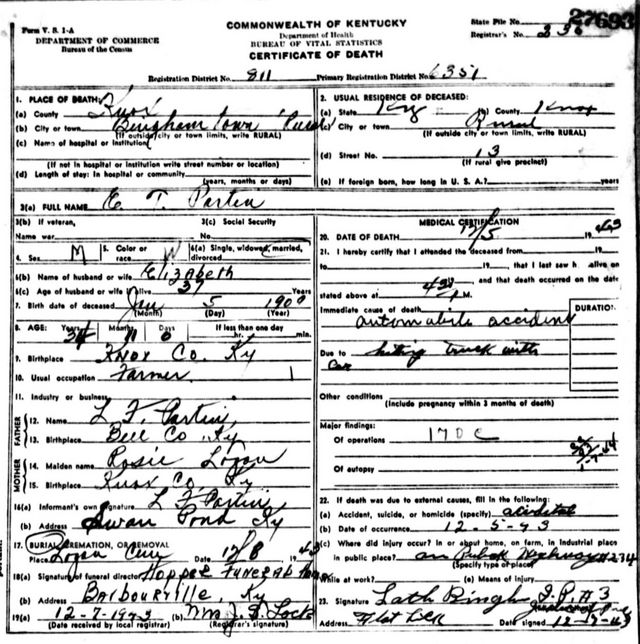 Form V. S. 1-A
DEPARTMENT OF COMMERCE
Bureau of the Census
COMMONWEALTH OF KENTUCKY
Department of Health
BUREAU OF VITAL STATISTICS
CERTIFICATE OF DEATH
State File No. 27693
Registrar's No. 236
Registration District No. 811 Primary Registration District No. 6351
1. PLACE OF DEATH:
(a) County Knox
(b) City or town Bingham Town Rural
(If outside city or town limits, write RURAL)
(c) Name of hospital or institution
(If not in hospital or institution write street number or location)
(d) Length of stay: In hospital or community
(years, months or days)
2. USUAL RESIDENCE OF DECEASED:
(a) State Ky (b) County Knox
(c) City or town Rural
(If outside city or town limits, write RURAL)
(d) Street No. 13
(If rural give precinct)
(e) If foreign born, how long in U. S. A.? years
3(a) FULL NAME T. Partin
3(b) If veteran,
Name war
3(c) Social Security
No.
4. Sex M 5. Color or race W 6(a) Single, widowed, married, divorced
6(b) Name of husband or wife Elizabeth
6(c) Age of husband or wife if alive 37 Years
7. Birth date of deceased Jan 5 1909
(Month) (Day) (Year)
8. AGE: Years 34 Months 11 Days 0 If less than one day
min.
9. Birthplace Knox Co. Ky
10. Usual occupation Farmer
11. Industry or business
FATHER
12. Name L. F. Partin
13. Birthplace Bell Co. Ky
MOTHER
14. Maiden name Rosie Logan
15. Birthplace Knox Co. Ky
16(a) Informant's own signature L F Partin
(b) Address Swan Pond Ky
17. BURIAL, CREMATION, OR REMOVAL
Place Logan Cem Date 12/8 1943
18(a) Signature of funeral director Hopper Funeral Home
(b) Address Barbourville, Ky
19(a) 12-7-1943 (b)
(Date received by local registrar) (Registrar's signature)
MEDICAL CERTIFICATION
20. DATE OF DEATH 1943
21. I hereby certify that I attended the deceased from 19
to 19 , that I last saw h alive on
19 , and that death occurred on the date
stated above at M.
Immediate cause of death
DURATION
automobile accident
Due to hiting truck with
car
Other conditions
(Include pregnancy within 3 months of death)
Major findings:
Of operations 170 C
Of autopsy
22. If death was due to external causes, fill in the following:
(a) Accident, suicide, or homicide (specify)
(b) Date of occurrence 12-5-43
(c) Where did injury occur? In or about home, on farm, in industrial place
in public place? on Public Highway
(Specify type of place)
While at work? (e) Means of injury
23. Signature
Address Flat Lick Date signed